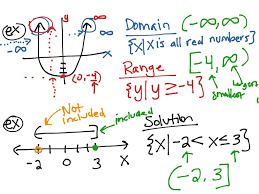 ex
-∞
∞
y
∞
x
(0,-4)
-∞
Domain (-∞,∞)
{x|x is all real numbers}
Range [-4,∞)
{y|y≥-4}
smallest
ex
Not included
included
-2 0 3 x
Solution
{x|-2<x≤3}
(-2,3]